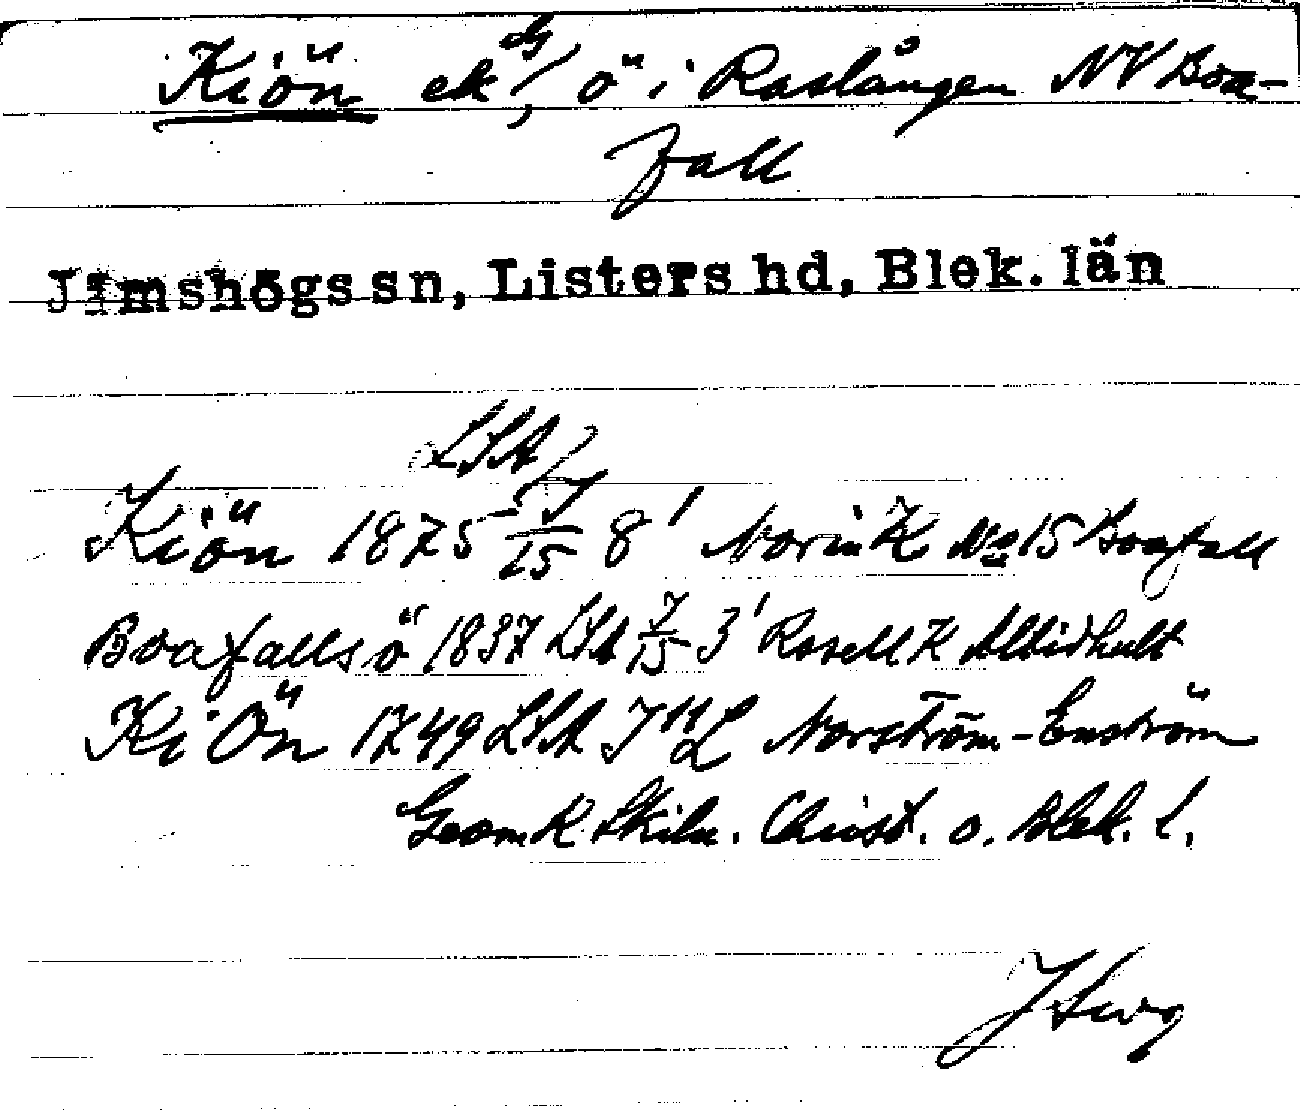 Kiön ek, ö i Raslången NV Boa-
fall
Jämshögs sn, Listers hd, Blek. län
LSA
Kiön 1875 J/15 8' Norin K No 15 Boafall
Boafalls ö 1837 LSA 7/15 3' Rosell K
Ki Ön 1749 LSA J"L Norström-Enström
Geom K Skiln. Christ. o. Blek. l.